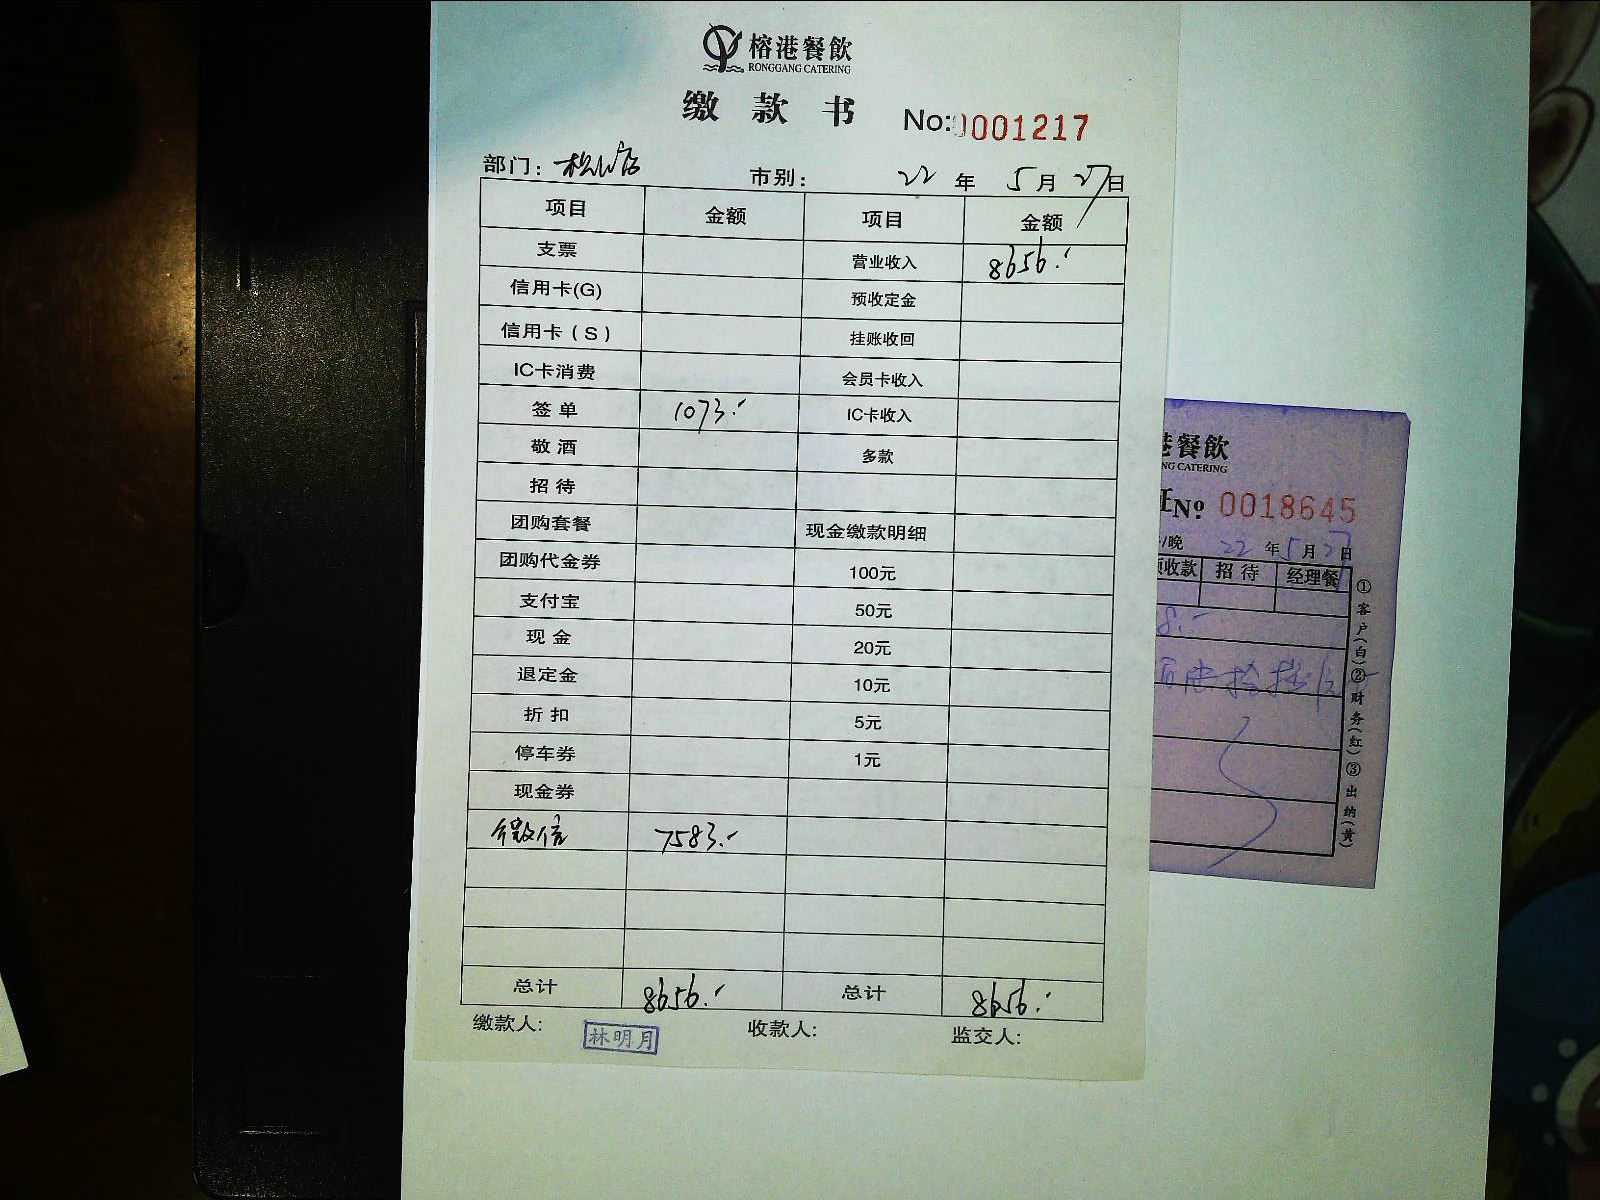 榕港餐飲
RONGGANG CATERING
缴款书 No:0001217
部门：松山店 市别： 22年5月27日
项目 金额 项目 金额
支票 营业收入 8656.-
信用卡(G) 预收定金
信用卡(S) 挂账收回
IC卡消费 会员卡收入
签单 1073.- IC卡收入
敬酒 多款
招待
团购套餐 现金缴款明细
团购代金券 100元
支付宝 50元
现金 20元
退定金 10元
折扣 5元
停车券 1元
现金券
微信 7583.-
总计 8656.- 总计 8656.-
缴款人: 林明月 收款人: 监交人:
港餐飲
NG CATERING
No 0018645
/晚 22年5月27日
收款 招待 经理餐
8.-
①客户(白)②财务(红)③出纳(黄)